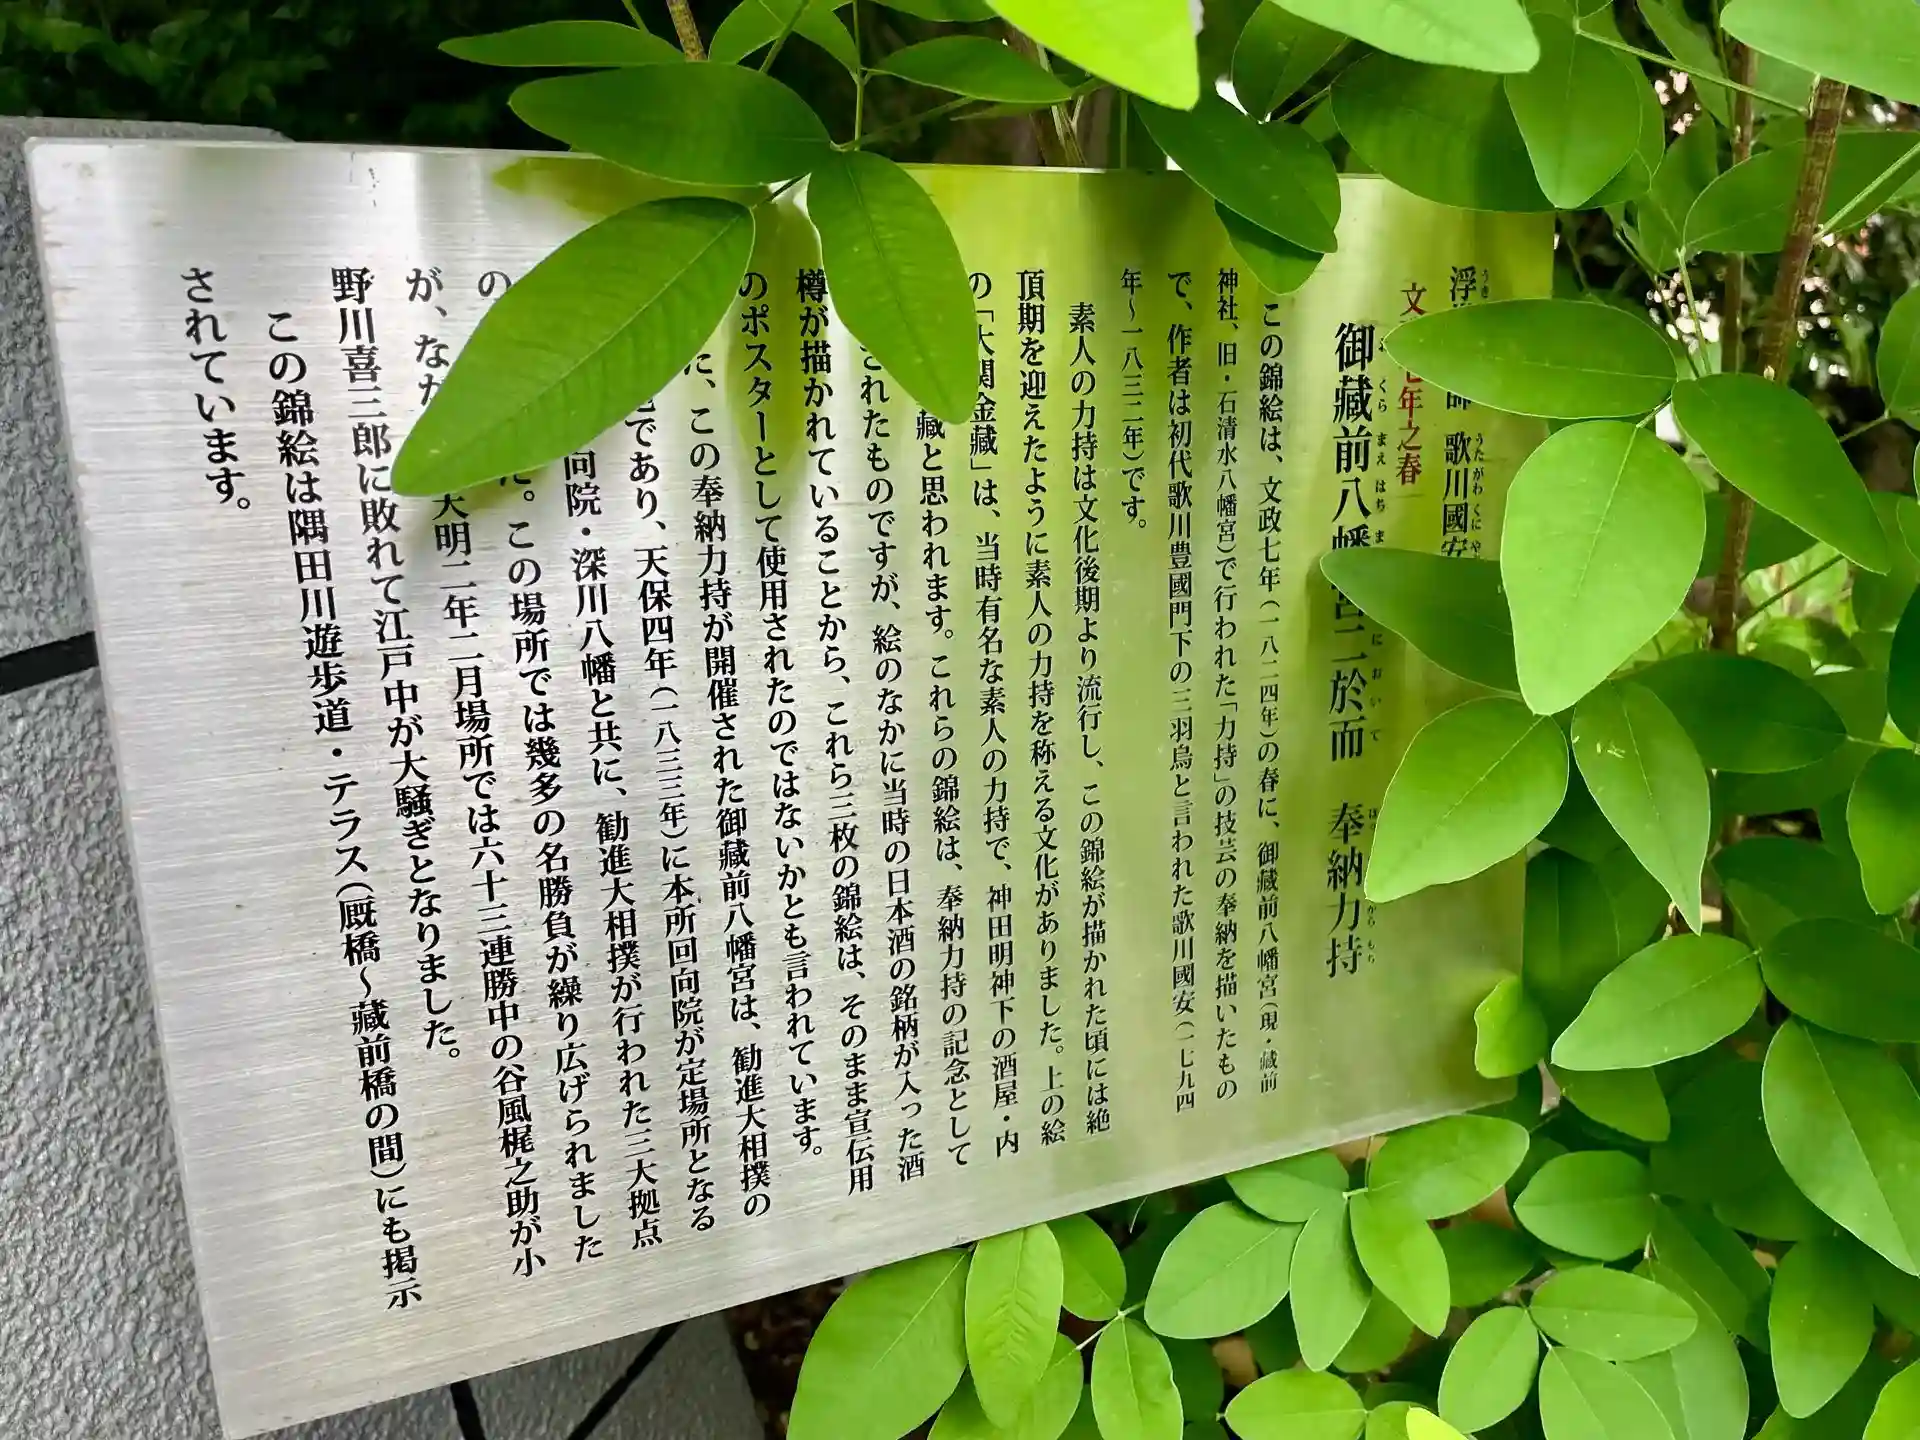 浮 師 歌川國安
うき うたがわ くに や
文 七年之春
御藏前八幡宮ニ於而 奉納力持
くら まえ はち ま にお いて から もち
この錦絵は、文政七年(一八二四年)の春に、御藏前八幡宮(現・藏前
神社、旧・石清水八幡宮)で行われた「力持」の技芸の奉納を描いたもの
で、作者は初代歌川豊國門下の三羽烏と言われた歌川國安(一七九四
年〜一八三二年)です。
素人の力持は文化後期より流行し、この錦絵が描かれた頃には絶
頂期を迎えたように素人の力持を称える文化がありました。上の絵
の「大関金藏」は、当時有名な素人の力持で、神田明神下の酒屋・内
藏と思われます。これらの錦絵は、奉納力持の記念として
されたものですが、絵のなかに当時の日本酒の銘柄が入った酒
樽が描かれていることから、これら三枚の錦絵は、そのまま宣伝用
のポスターとして使用されたのではないかとも言われています。
た、この奉納力持が開催された御藏前八幡宮は、勧進大相撲の
であり、天保四年(一八三三年)に本所回向院が定場所となる
向院・深川八幡と共に、勧進大相撲が行われた三大拠点
の た。この場所では幾多の名勝負が繰り広げられました
が、なか 天明二年二月場所では六十三連勝中の谷風梶之助が小
野川喜三郎に敗れて江戸中が大騒ぎとなりました。
この錦絵は隅田川遊歩道・テラス(厩橋〜藏前橋の間)にも掲示
されています。